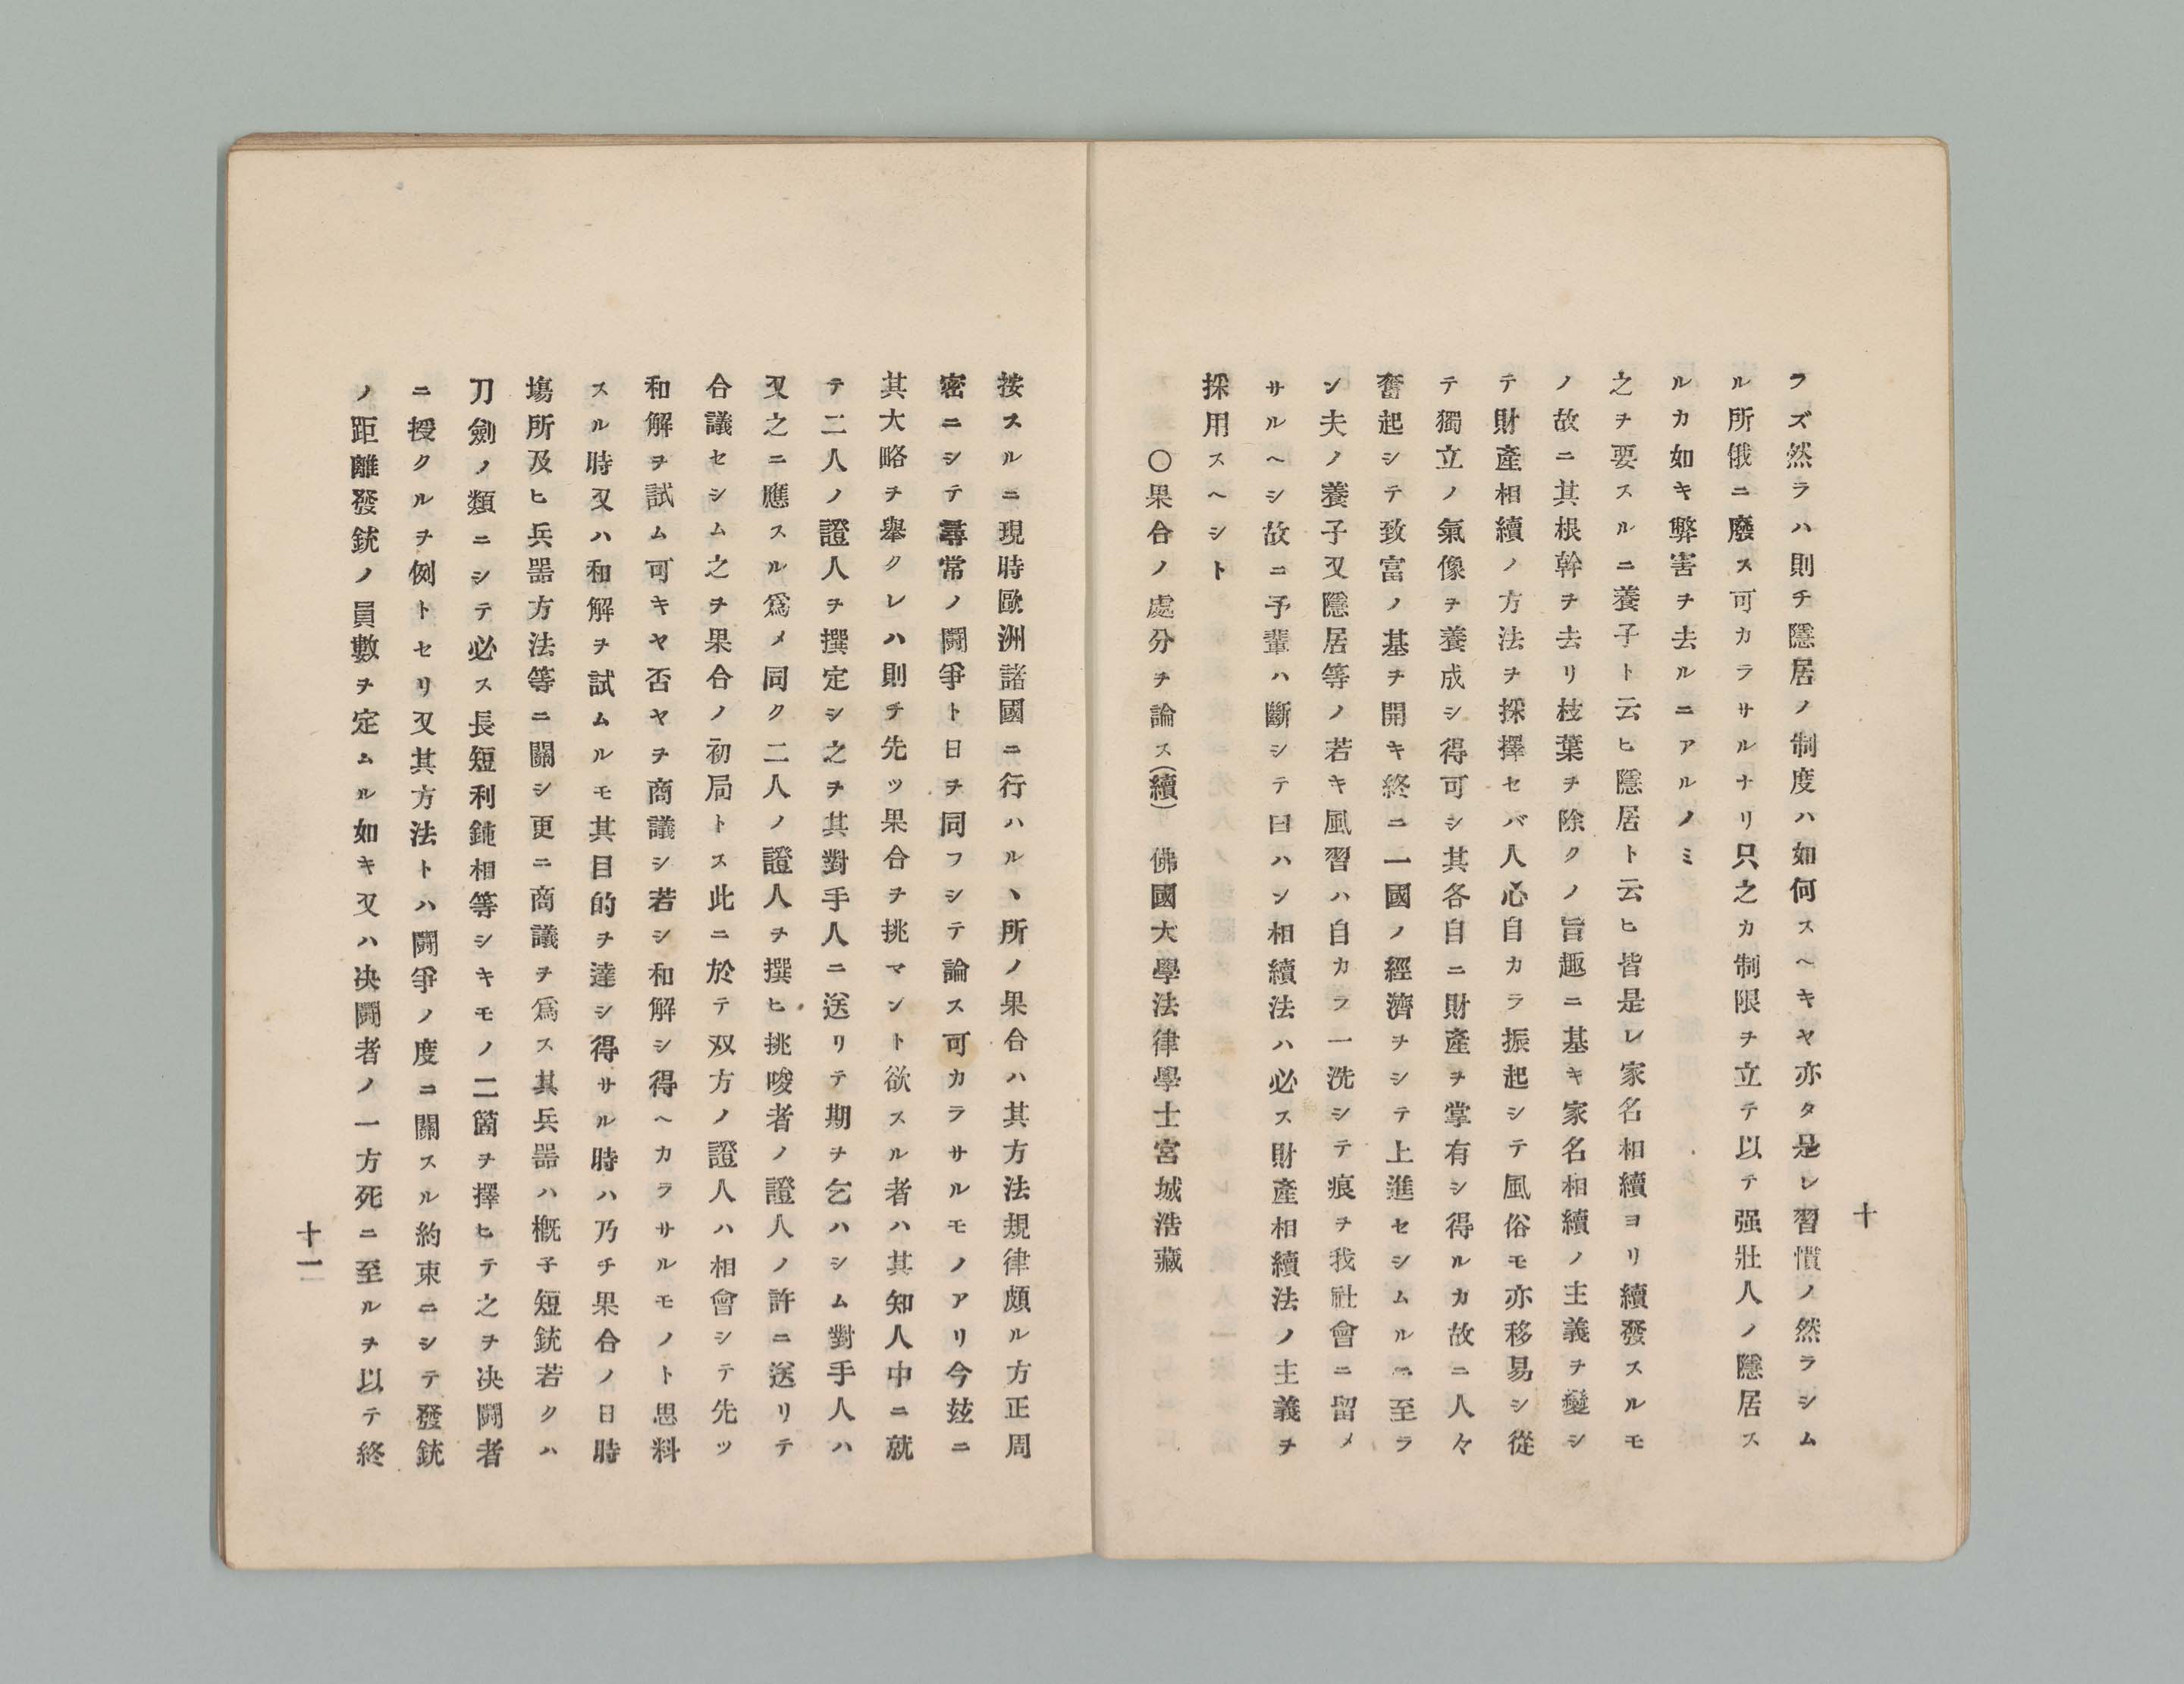 十
ラズ然ラハ則チ隱居ノ制度ハ如何スヘキヤ亦タ是レ習慣ノ然ラシム
ル所俄ニ廢ス可カラサルナリ只之カ制限チ立テ以テ强壯人ノ隱居ス
ルカ如キ弊害ヲ去ルニアルノミ
之ヲ要スルニ養子ト云ヒ隱居ト云ヒ皆是レ家名相續ヨリ續發スルモ
ノ故ニ其根幹ヲ去リ枝葉チ除クノ旨趣ニ基キ家名相續ノ主義ヲ變シ
テ財產相續ノ方法ヲ採擇セバ人心自カラ振起シテ風俗モ亦移易シ從
テ獨立ノ氣像ヲ養成シ得可シ其各自ニ財產ヲ掌有シ得ルカ故ニ人々
奮起シテ致富ノ基チ開キ終ニ一國ノ經濟チシテ上進セシムルニ至ラ
ン夫ノ養子又隱居等ノ若キ風習ハ自カラ一洗シテ痕ヲ我社會ニ留メ
サルヘシ故ニ予輩ハ斷シテ曰ハン相續法ハ必ス財產相續法ノ主義チ
採用スヘシト
〇果合ノ處分チ論ス(續) 佛國大學法律學士宮城浩藏
按スルニ現時歐洲諸國ニ行ハルヽ所ノ果合ハ其方法規律頗ル方正周
密ニシテ尋常ノ鬪爭ト日ヲ同フシテ論ス可カラサルモノアリ今玆ニ
其大略チ擧クレハ則チ先ッ果合チ挑マント欲スル者ハ其知人中ニ就
テ二人ノ證人ヲ撰定シ之ヲ其對手人ニ送リテ期チ乞ハシム對手人ハ
又之ニ應スル爲メ同ク二人ノ證人チ撰ヒ挑唆者ノ證人ノ許ニ送リテ
合議セシム之ヲ果合ノ初局トス此ニ於テ双方ノ證人ハ相會シテ先ッ
和解ヲ試ム可キヤ否ヤヲ商議シ若シ和解シ得ヘカラサルモノト思料
スル時又ハ和解ヲ試ムルモ其目的チ達シ得サル時ハ乃チ果合ノ日時
塲所及ヒ兵器方法等ニ關シ更ニ商議ヲ爲ス其兵器ハ槪子短銃若クハ
刀劍ノ類ニシテ必ス長短利鈍相等シキモノ二箇ヲ擇ヒテ之ヲ决鬪者
ニ授クルヲ例トセリ又其方法トハ鬪爭ノ度ニ關スル約束ニシテ發銃
ノ距離發銃ノ員數ヲ定ムル如キ又ハ决鬪者ノ一方死ニ至ルヲ以テ終
十一